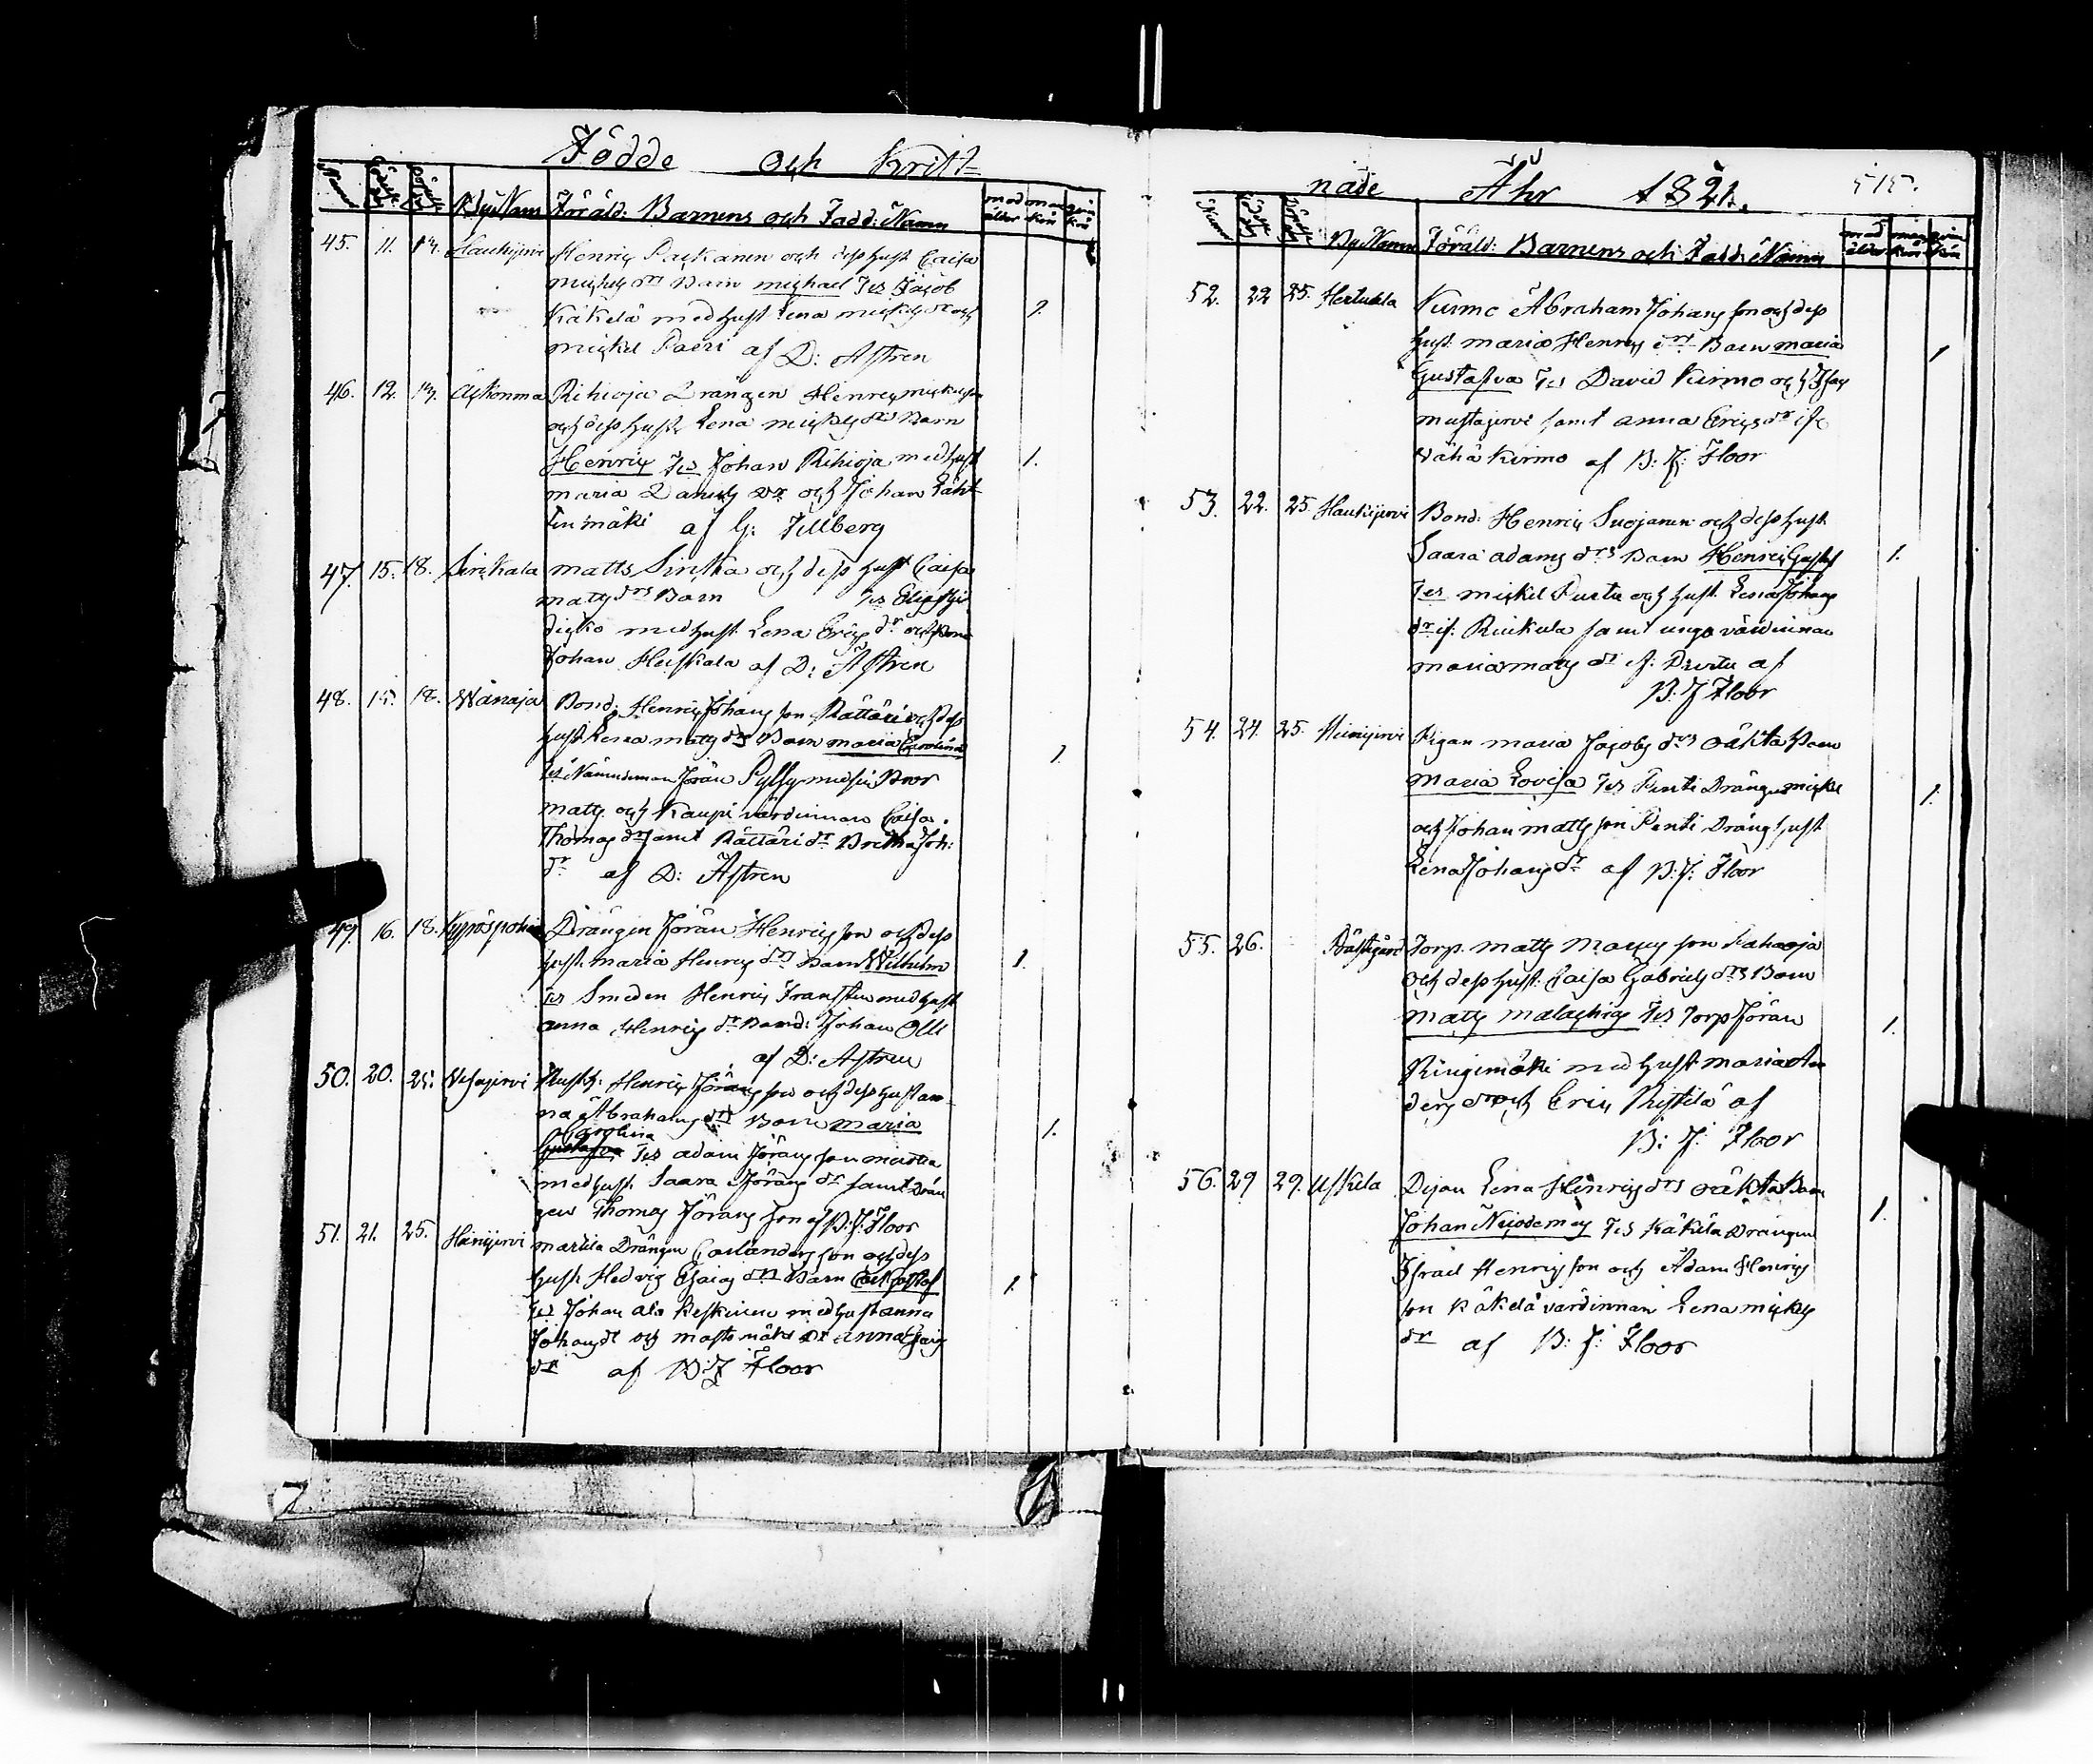 Födde och Krist=
Numer Födelse dag Döpelse dag ByNam Föräld: Barnens och Fadd: Namn mod ålder man kön qvin kön
45. 11. 14. Haukijervi Henric Paskanen och dess hust Caisa
Michels dr Barn Michael Fes Jacob
Käkelä med hust Lena Mickels dr och
Mickel Paeri af D: Astren
1.
46. 12. 14. Äckönmaa Rihioja Drängen Henric Mickelson
och dess hust Lena Mickels drs Barn
Henric Fes Johan Rihioja med hust
Maria Daniels dr och Johan Läht
tenmäki af G: Tillberg
1.
47. 15. 18. Sirickala Matts Sirckka och dess hust Caisa
Matts drs Barn Fes Elias
med hust Lena Erics dr och
Johan Heiskala af D: Astren
48. 15. 18. Wänaja Bond: Henric Johans son Rättäri och dess
hust Lena Matts drs Barn Maria Carolina
Fes Nämndeman Jöran Pylsy med sin Bror
Matts och Kaupi värdinnan Caisa
Thomas dr samt Rättäri dr Britha Joh:
dr af D: Astren
1.
49. 16. 18. Kyröspohia Drängen Jöran Henrics son och dess
hust Maria Henrics drs Barn Wilhelm
Fes Smeden Henric Fransten med hust
Anna Henrics dr Bond: Johan Olli
af D: Astren
1.
50. 20. 25. Vesajervi Henric Jörans son och dess hust An
na Abrahams drs Barn Maria
Carolina
Gustafva Fes Adam Jörans son
med hust Saara Jörans dr samt Drän
gen Thomas Jörans son af B: J: Floor
1.
51. 21. 25. Heinijervi Martila Drängen Carl Anders son och dess
hust Hedvig Esaias drs Barn Carl Gustaf
Fes Johan ala Keskinen med hust Anna
Johans dr och Mastomäki dr Anna Esaias
dr af B: J Floor
1.
nade Åhr 1821. 515.
Numer Födelse dag Döpelse dag By Namn Föräld: Barnens och Fadd: Namn mod ålder man kön qvin kön
52. 22 25. Hertuala Kirmo Abraham Johans son och dess
hust Maria Henrics drs Barn Maria
Gustafva Fes David Kirmo och Isac
Mustajervi samt Anna Erics dr ifr
Vähä Kirmo af B: J: Floor
1
53. 22. 25. Haukijervi Bond: Henric Suojanen och dess hust
Saara Adams drs Barn Henric Gustaf
Fes Mickel Purtu och hust Lena Johans
dr if: Riukula samt unga värdinnan
Maria Matts dr if: Purtu af
B: J Floor
1.
54. 24. 25. Heinijervi Pigan Maria Jacobs drs oäkta Barn
Maria Lovisa Fes Penti Drängen Mickel
och Johan Matts son Penti Dräng hust
Lena Johans dr af B: J: Floor
1.
55. 26. Torp. Matts Matts son Rahaoja
och dess hust: Caisa Gabriels drs Barn
Matts Malachias Fes Torp Jöran
Ringimäki med hust Maria An
ders dr och Eric Ristilä af
B: J: Floor
1.
56. 29 29. Uskela Pijan Lena Henrics drs oäkta Barn
Johan Nicodemus Fes Käkelä Drängen
Israel Henrics son och Adam Henrics
son Käkelä värdinnan Lena Mickels
dr af B: J: Floor
1.